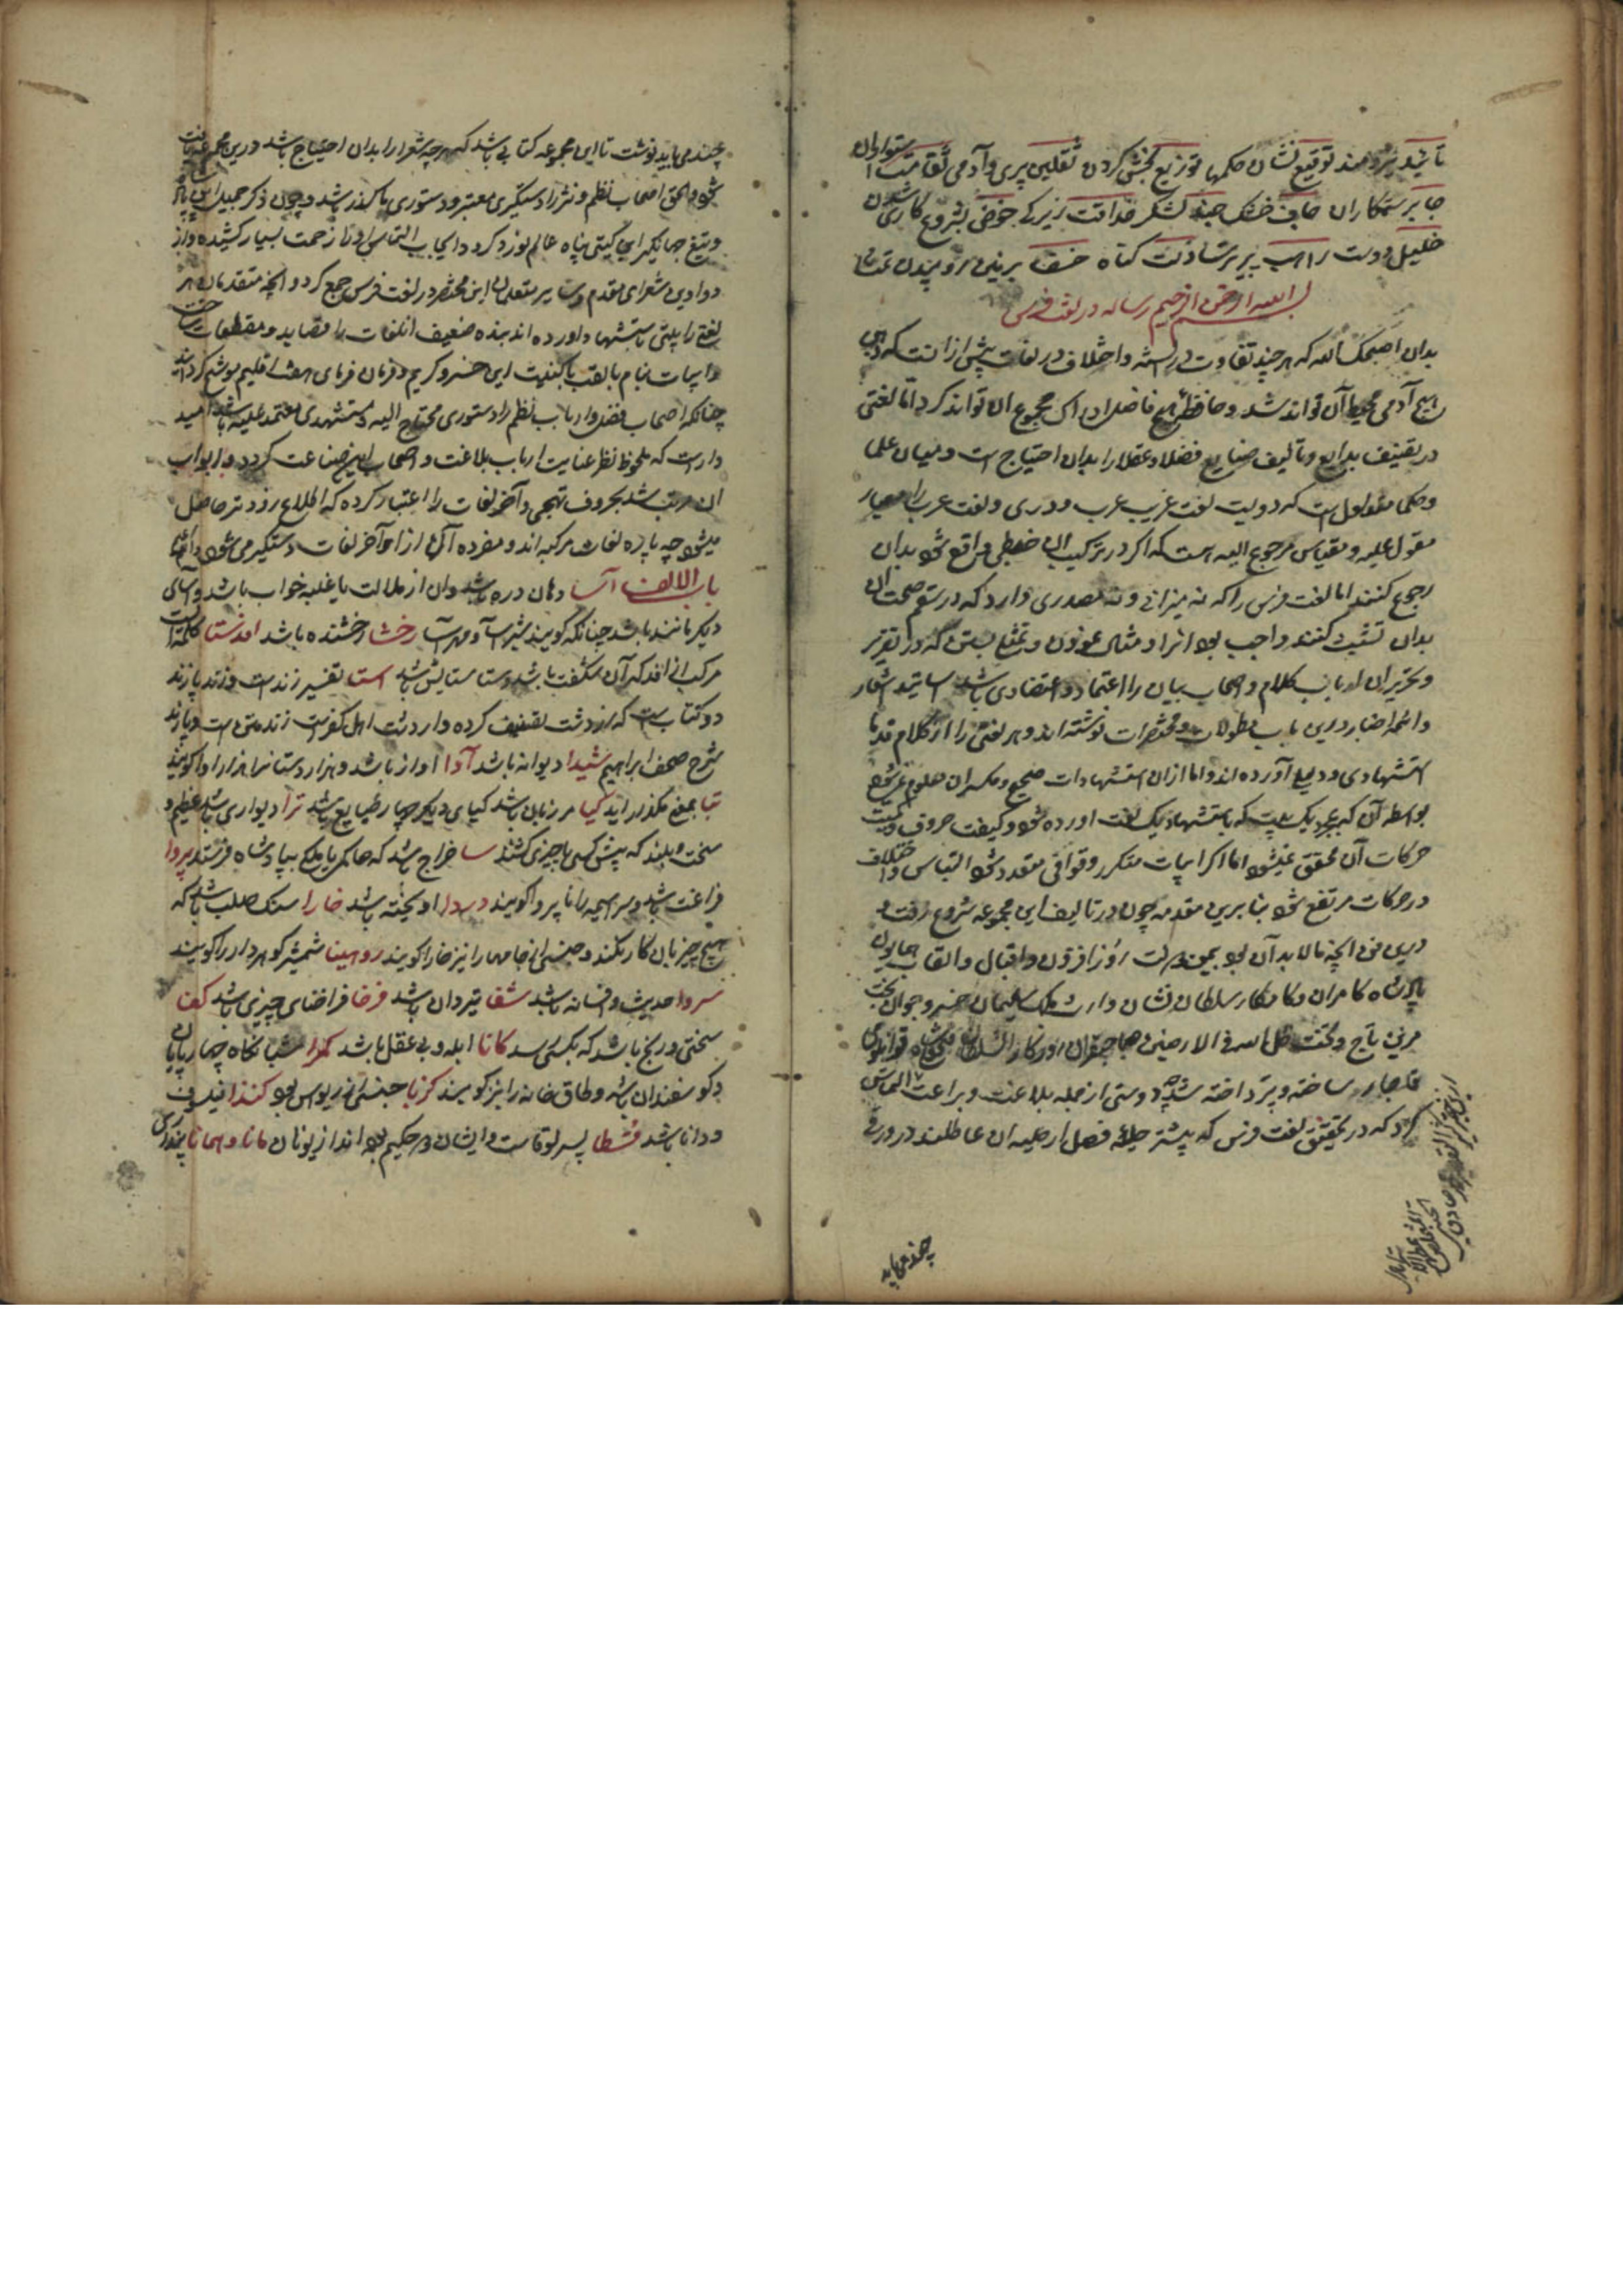 تائید نیرومند توقیع نشان حکمها توزیع بخش کردن ثقلین پری و آدمی ثقامت استواران
جابر ستمکاران جاف خشک جیش لشکر حذاقت زیرکی خوض بشروع کاری شدن
خلیل دوست راهب پیر ترسا زلت گناه
بسم الله الرحمن الرحیم رساله در لغت فرس
بدان اصبحک الله که هر چند تفاوت در السنه و اختلاف در لغات بیش از آنست که ذهن
هیچ آدمی محیط آن تواند شد و حافظه هیچ فاضل ادراک مجموع آن تواند کرد اما لغتی
در تصنیف بدایع و تالیف صنایع فضلا و عقلا را بدان احتیاج است و میان علما
و حکما متداول است که دویست لغت غریب عرب و دری و لغت عرب را معیار
مقول علیه و مقیاس مرجوع الیه است که اگر در ترکیب آن خبطی واقع شود بدان
رجوع کنند اما لغت فرس را که نه میزانی و نه مصدری دارد که در سقم و صحت آن
بدان تشبث کنند واجب بود آنرا مثالی موزون و تمثیلی که در تقریر
و تحریر آن ارباب کلام و اصحاب بیان را اعتماد و اعتضادی باشد اساتید اشعار
و ائمه اخبار درین باب مطولات و مختصرات نوشته‌اند و هر لغتی را از کلام قدما
استشهادی و دلیلی آورده‌اند و اما از آن استشهادات صحیح و مکسر آن معلوم نمی‌شود
بواسطه آن که بمجرد یک بیت که باستشهاد یک لغت آورده شود کیفیت حروف و کمیت
حرکات آن محقق نمیشود اما اگر ابیات متکرر و قوافی متعدد شود التباس و اختلاف
در حرکات مرتفع شود بنا برین مقدمه چون در تالیف این مجموعه شروع رفت و
درین فن آنچه ما لابد آن بود بیمن دولت روز افزون و اقبال و القاب همایون
پادشاه کامران و کامکار سلطان نشان وارث ملک سلیمان خسرو جوان بخت
مزین تاج و تخت ظل الله فی الارضین صاحبقران روزگار
ساخته و پرداخته شد دوستی از جمله بلاغت و براعت التماس
کرد که در تحقیق لغت فرس که بیشتر حلیهٔ فضل از حلیه آن عاطلند در ورقی
چند می‌باید
چند می‌باید نوشت تا این مجموعه کتابی باشد که هر چه شعرا را بدان احتیاج باشد درین مجموعه یافت
شود و الحق اصحاب نظم و نثر را دستگیری معتبر و دستوری باشد و چون ذکر جمیل این پادشاه
و تیغ جهانگیر این گیتی پناه عالم نورد کرد و ایجاب التماس او را زحمت بسیار کشیده و از
دواوین شعرای مقدم و سایر متعلمان این مختصر در لغت فرس جمع کرد و آنچه متقدمان هر
لغتی را بیتی باستشهاد آورده‌اند بنده ضعیف آن لغات را قصاید و مقطعات ساخت
و ابیات بنام یا لقب یا کنیت این خسرو کریم و فرمان فرمای هفت اقلیم موشح گردانید
چنانکه اصحاب فضل و ارباب نظم را دستوری محتاج الیه و مستشهدی معتمد علیه باشد امید
دارست که ملحوظ نظر عنایت ارباب بلاغت و اصحاب این صناعت گردد و ابواب
آن مرتب شد بحروف تهجی و آخر لغات را اعتبار کرده که اطلاع زودتر حاصل
میشود چه پاره لغات مرکبه‌اند و مفرده آگهی از اواخر لغات دستگیر می‌شود
باب الالف آسا دهان دره باشد و آن از ملالت یا غلبه خواب باشد و آسای
دیگر مانند باشد چنانکه گویند شیر آسا و مهر آسا رخشا رخشنده باشد افدستا کلمه‌ایست
مرکب از افد که آن شگفت باشد و ستا ستایش باشد استا تفسیر زندست و زند و پازند
دو کتابست که زردشت تصنیف کرده و زند متن است و پازند
شرح صحف ابراهیم شیدا دیوانه باشد آوا آواز باشد و هزاردستان را هزارآوا گویند
کیا مرزبان باشد کیای دیگر چهار طبایع باشد ترا دیواری باشد عظیم و
سخت و بلند که پیش کسی یا چیزی کشند سا خراج باشد که حاکم یا ملکی بپادشاه فرستد پروا
فراغت باشد و سراسیمه را ناپروا گویند دروا آویخته باشد خارا سنگ صلب باشد که
هیچ چیز بآن کار نکند و جنسی از جامها را نیز خارا گویند روهینا شمشیر گوهردار را گویند
سروا حدیث و افسانه باشد شغا تیردان باشد فرخا فراخنای چیزی باشد کفا
سختی و رنج باشد که بکسی رسد کانا ابله و بی عقل باشد کمرا شبانگاه چهارپایان
و گوسفندان باشد و طاق خانه را نیز گویند کرنبا جنسی از ریواس بود کندا فیلسوف
و دانا باشد قسطا پسر لوقاست و ایشان دو حکیم بوده‌اند از یونان مانا و همانا پنداری